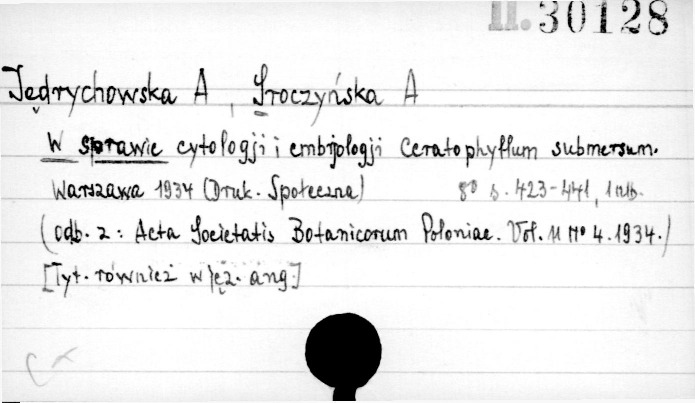 II. 30128
Jędrychowska A , Sroczyńska A
W sprawie cytologji i embrjologji Ceratophyllum submersum.
Warszawa 1934 (Druk. Społeczna) 8° s. 423-441, 1 nlb.
(odb. z: Acta Societatis Botanicorum Poloniae. Vol. 11 Nº 4. 1934.)
[Tyt. również w jęz. ang.]